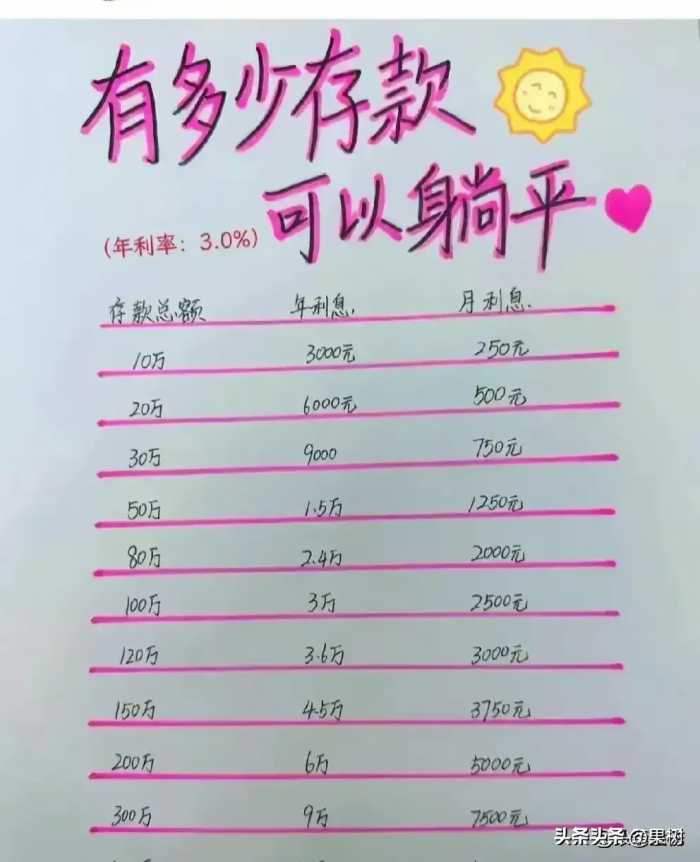 有多少存款
可以躺平
(年利率：3.0%)
存款总额 年利息. 月利息.
10万 3000元 250元
20万 6000元 500元
30万 9000 750元
50万 1.5万 1250元
80万 2.4万 2000元
100万 3万 2500元
120万 3.6万 3000元
150万 4.5万 3750元
200万 6万 5000元
300万 9万 7500元
头条 @果树